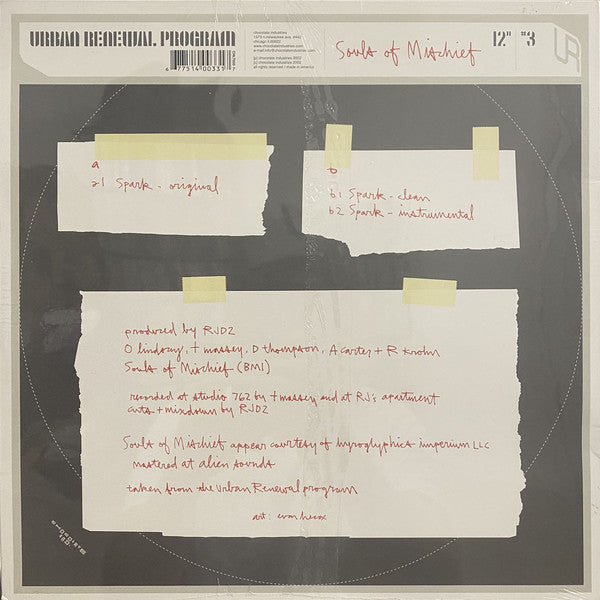 URBAN RENEWAL PROGRAM
chocolate industries
chicago il 60622
www.chocolateindustries.com
(p) chocolate industries 2002
(c) chocolate industries 2002
all rights reserved / made in america
6 77514 00331
Souls of Mischief
12" #3
UR
a
a1 Spark - original
b
b1 Spark - clean
b2 Spark - instrumental
produced by RJD2
O lindsay, t massey, D thompson, A carter + R krohn
Souls of Mischief (BMI)
recorded at studio 762 by t massey and at RJ's apartment
cuts + mixdown by RJD2
Souls of Mischief appear courtesy of hyroglyphics imperium LLC
mastered at alien sounds
taken from the Urban Renewal program
art: evan hecox